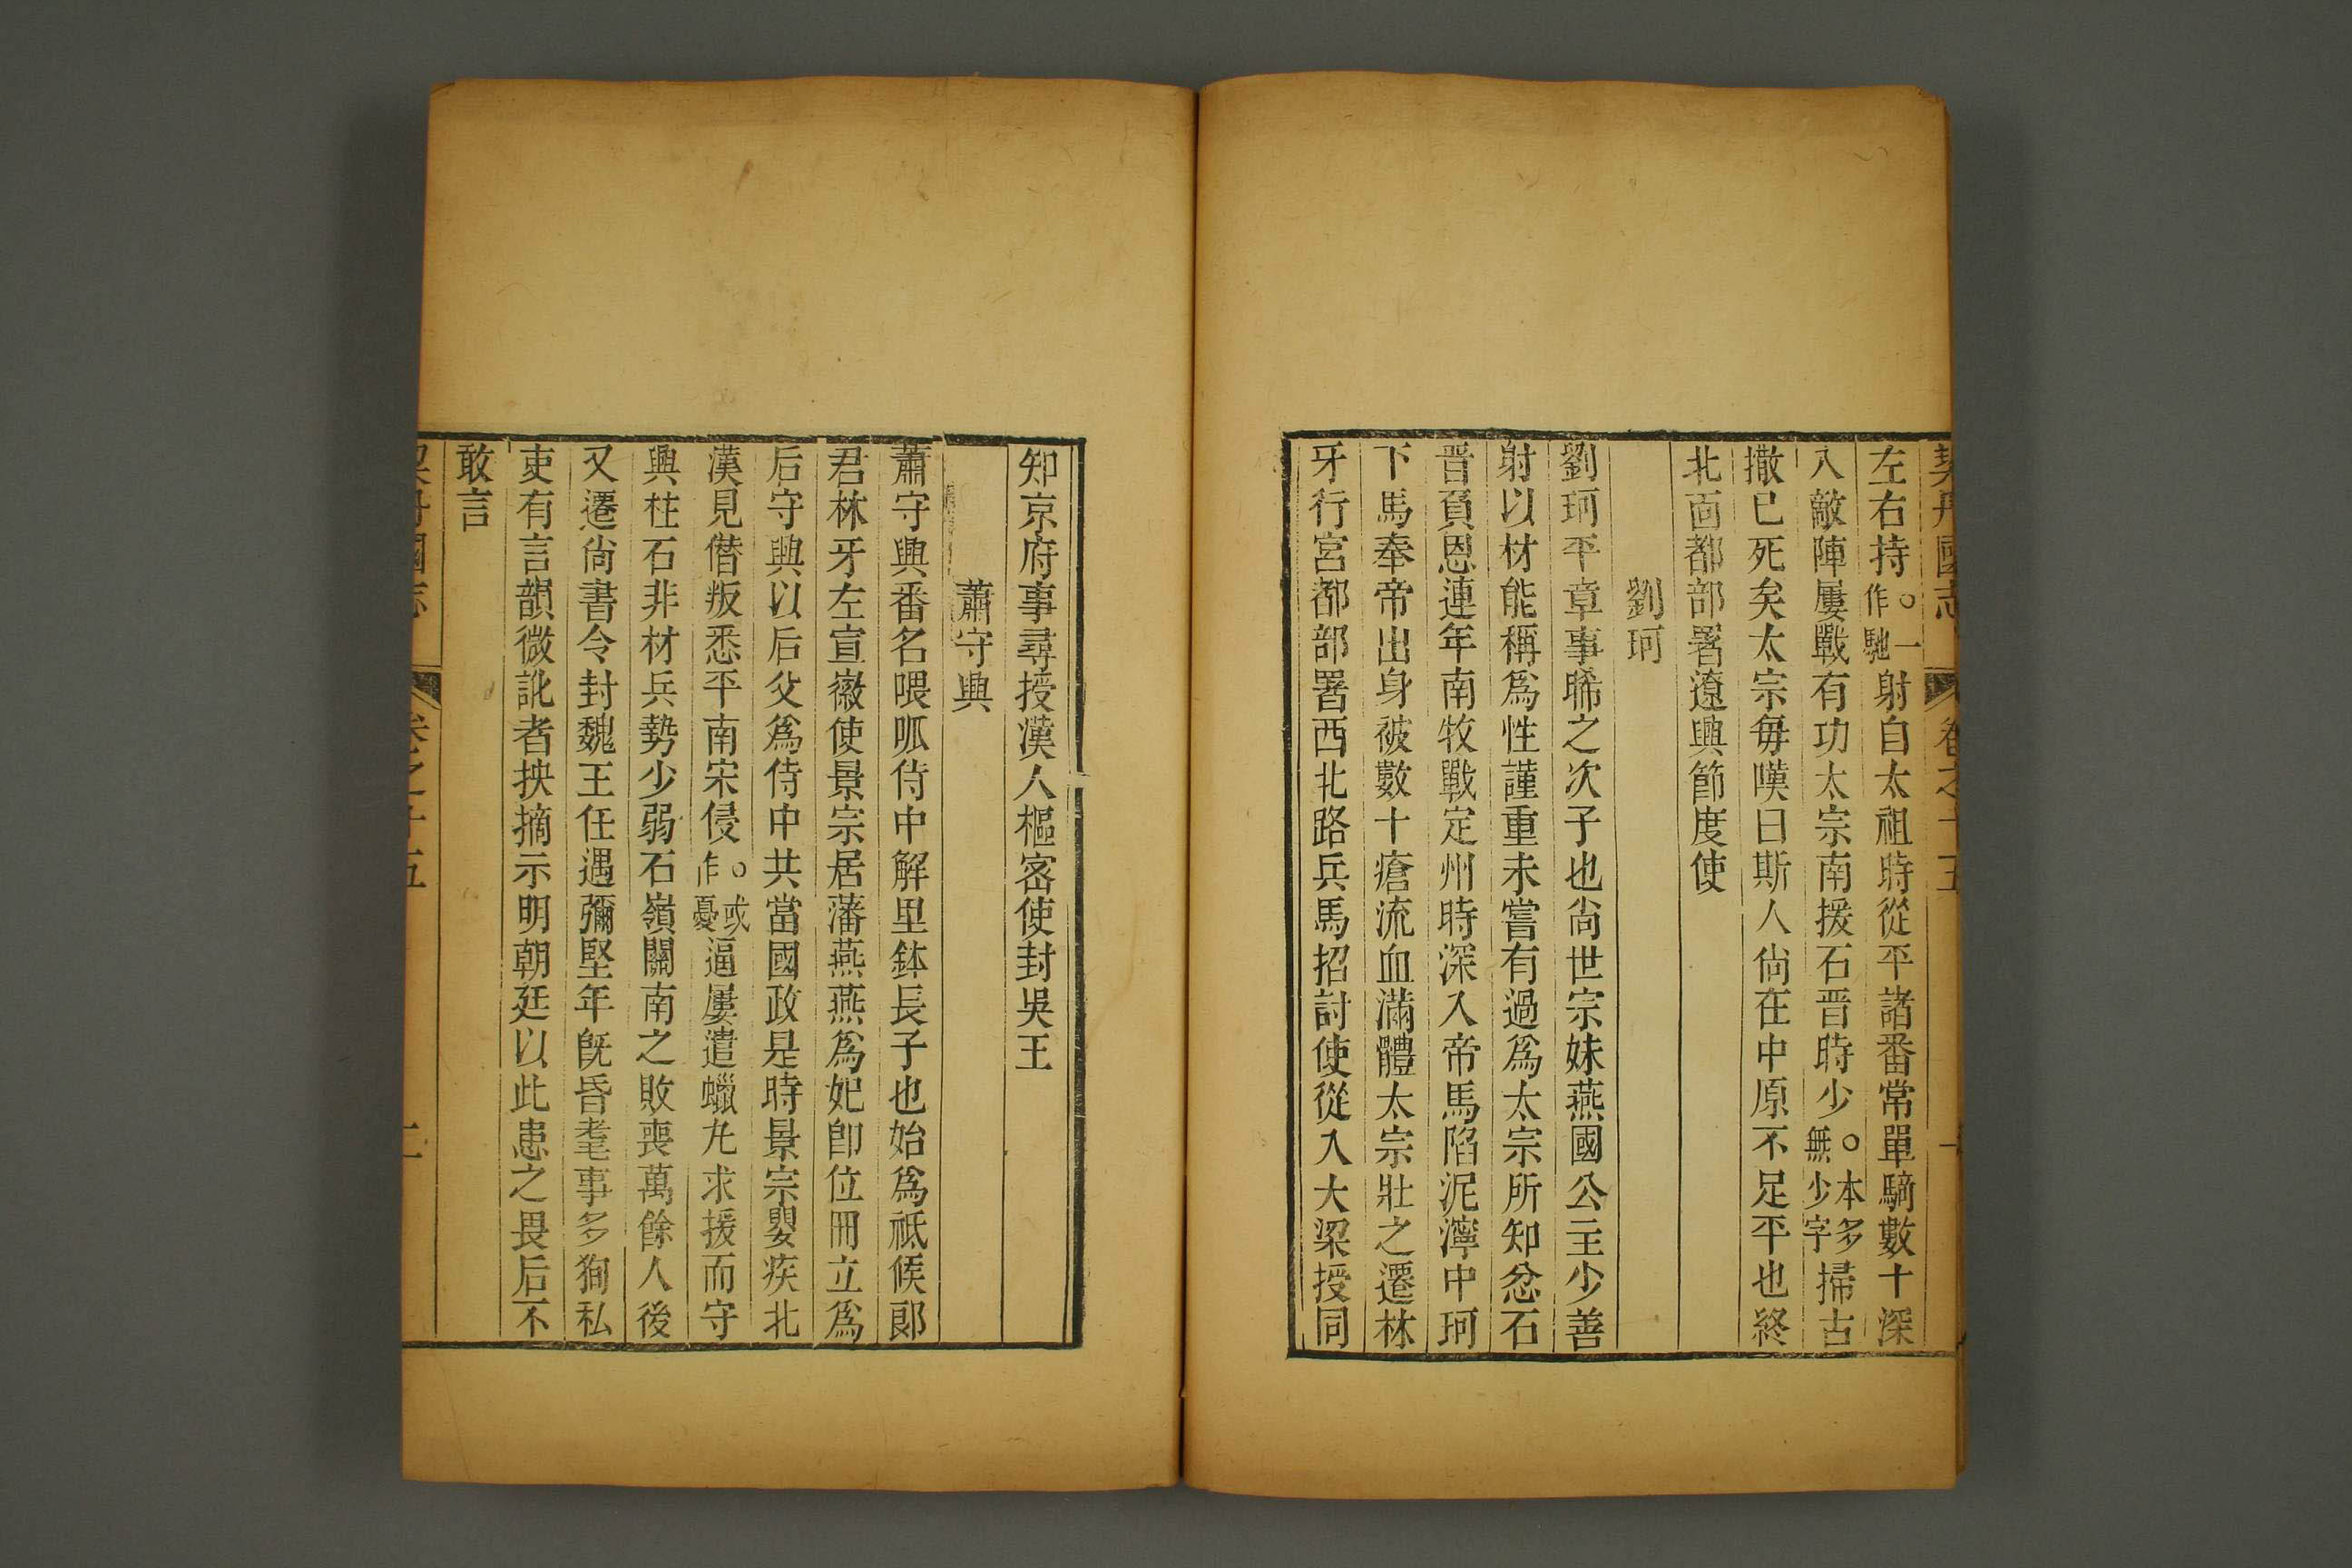 契丹國志
卷之十五
左右持〇一作馳射自太祖時從平諸番常單騎數十深
入敵陣屢戰有功太宗南援石晉時少〇本多無少字掃古
撒已死矣太宗每嘆曰斯人尙在中原不足平也終
北面都部署遼興節度使
劉珂
劉珂平章事晞之次子也尙世宗妹燕國公主少善
射以材能稱爲性謹重未嘗有過爲太宗所知忿石
晋負恩連年南牧戰定州時深入帝馬陷泥濘中珂
下馬奉帝出身被數十瘡流血滿體太宗壯之遷林
牙行宮都部署西北路兵馬招討使從入大梁授同
知京府事尋授漢人樞密使封吳王
蕭守興
蕭守興番名喂呱侍中解里鉢長子也始爲祇候郞
君林牙左宣徽使景宗居藩燕燕爲妃卽位冊立爲
后守興以后父爲侍中共當國政是時景宗嬰疾北
漢見僣叛悉平南宋侵〇或作憂逼屢遣蠟丸求援而守
興柱石非材兵勢少弱石嶺關南之敗喪萬餘人後
又遷尙書令封魏王任遇彌堅年旣昏耄事多狥私
吏有言韻微訛者抉摘示明朝廷以此患之畏后不
敢言
契丹國志
卷之十五